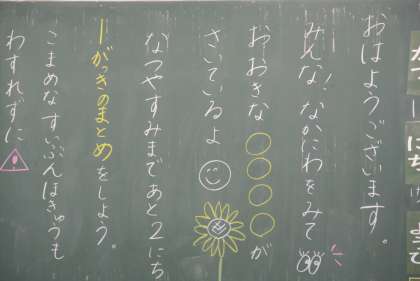 おはようございます。
みんな!なかにわをみて
おおきな〇〇〇〇が
さいているよ
なつやすみまであと2にち
1がっきのまとめをしよう。
こまめなすいぶんほきゅうも
わすれずに